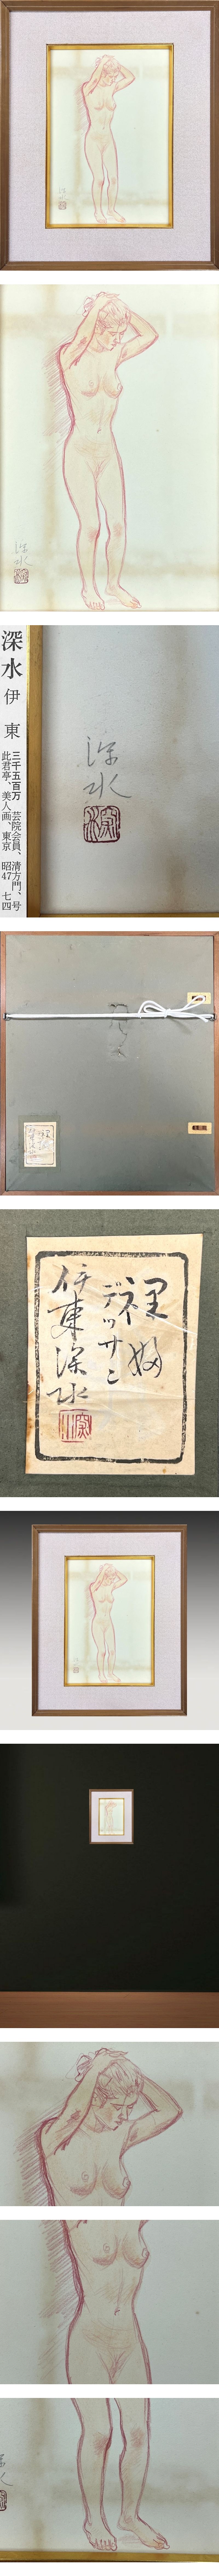 深水
深水
深水
伊東
三千五百万 芸院会員、清方門、号
此君亭、美人画、東京 昭47 七四
深水
深水
裸婦
デッサン
伊東深水
深水
深水